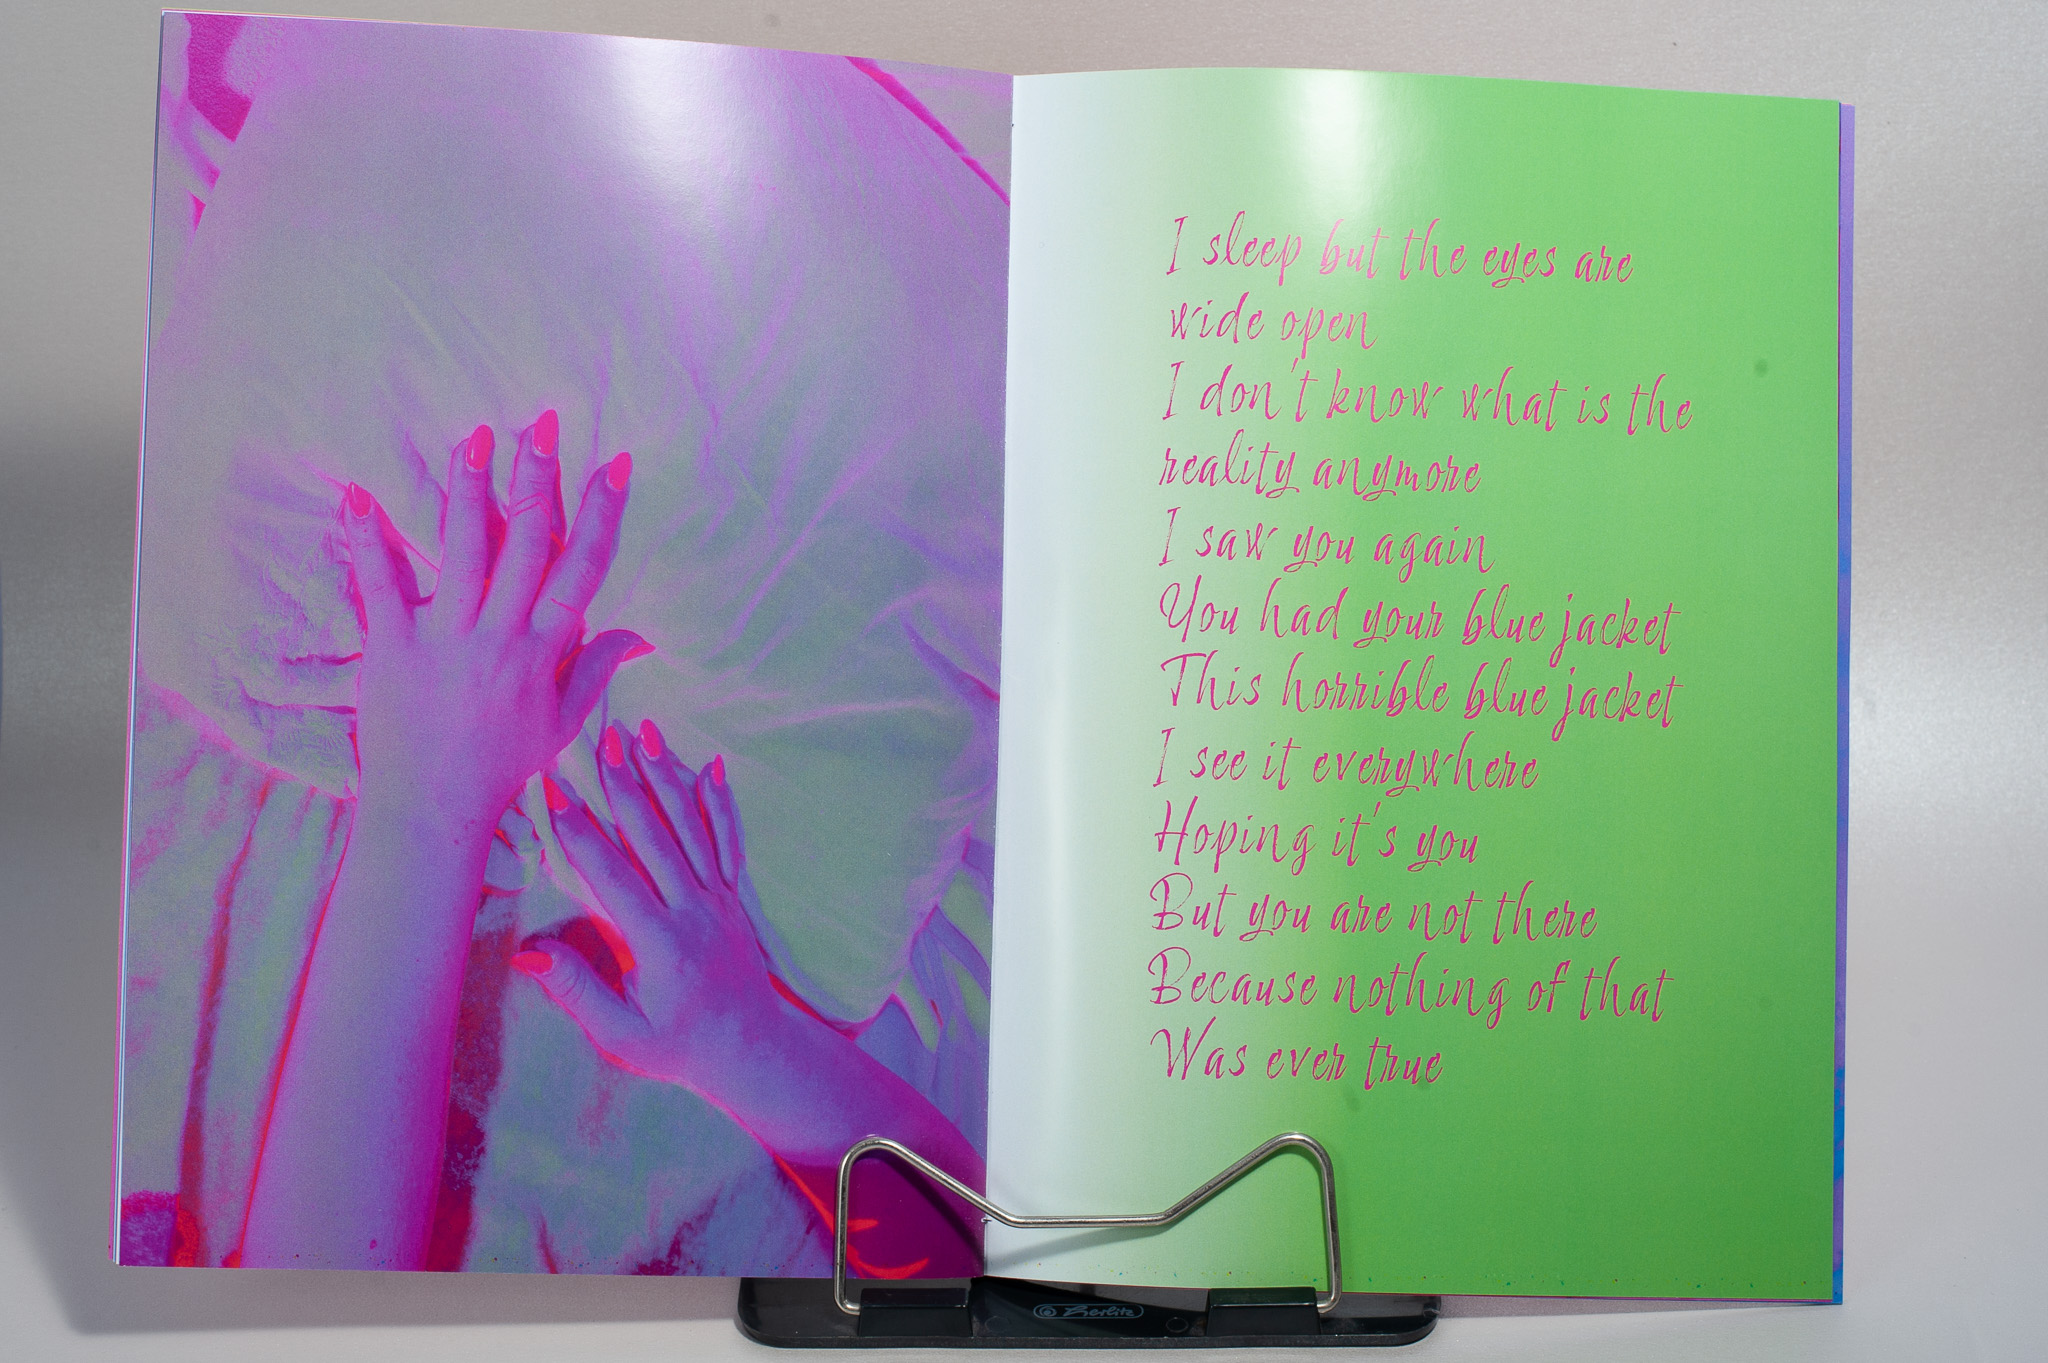 I sleep but the eyes are
wide open
I don't know what is the
reality anymore
I saw you again
You had your blue jacket
This horrible blue jacket
I see it everywhere
Hoping it's you
But you are not there
Because nothing of that
Was ever true
Herlitz